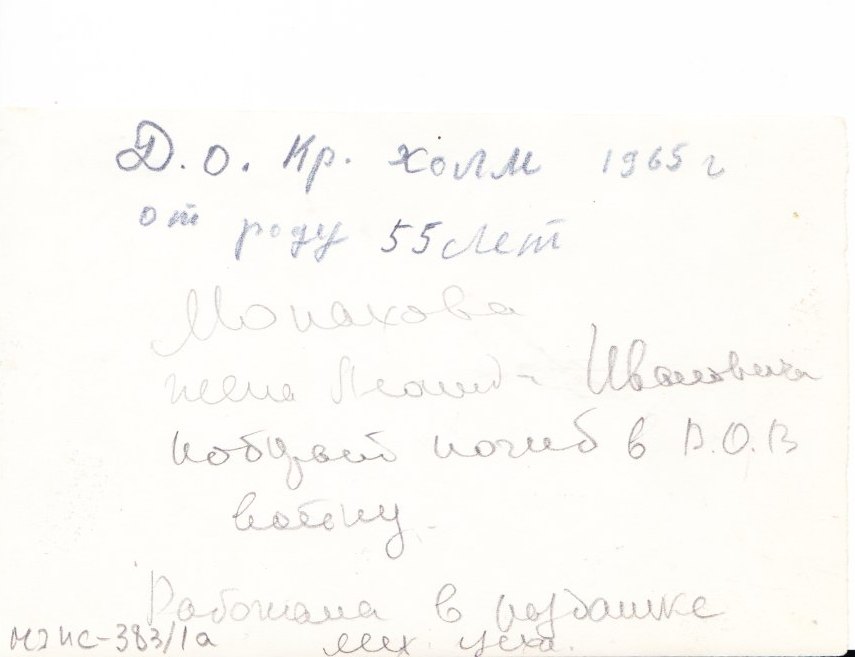 Д.О. Кр. Холм 1965 г
от роду 55 лет
Монахова
жена Леонид- Ивановича
который погиб в В.О.В
войну.
Работала в раздашке
мех. цеха.
МЭИС-383/1а